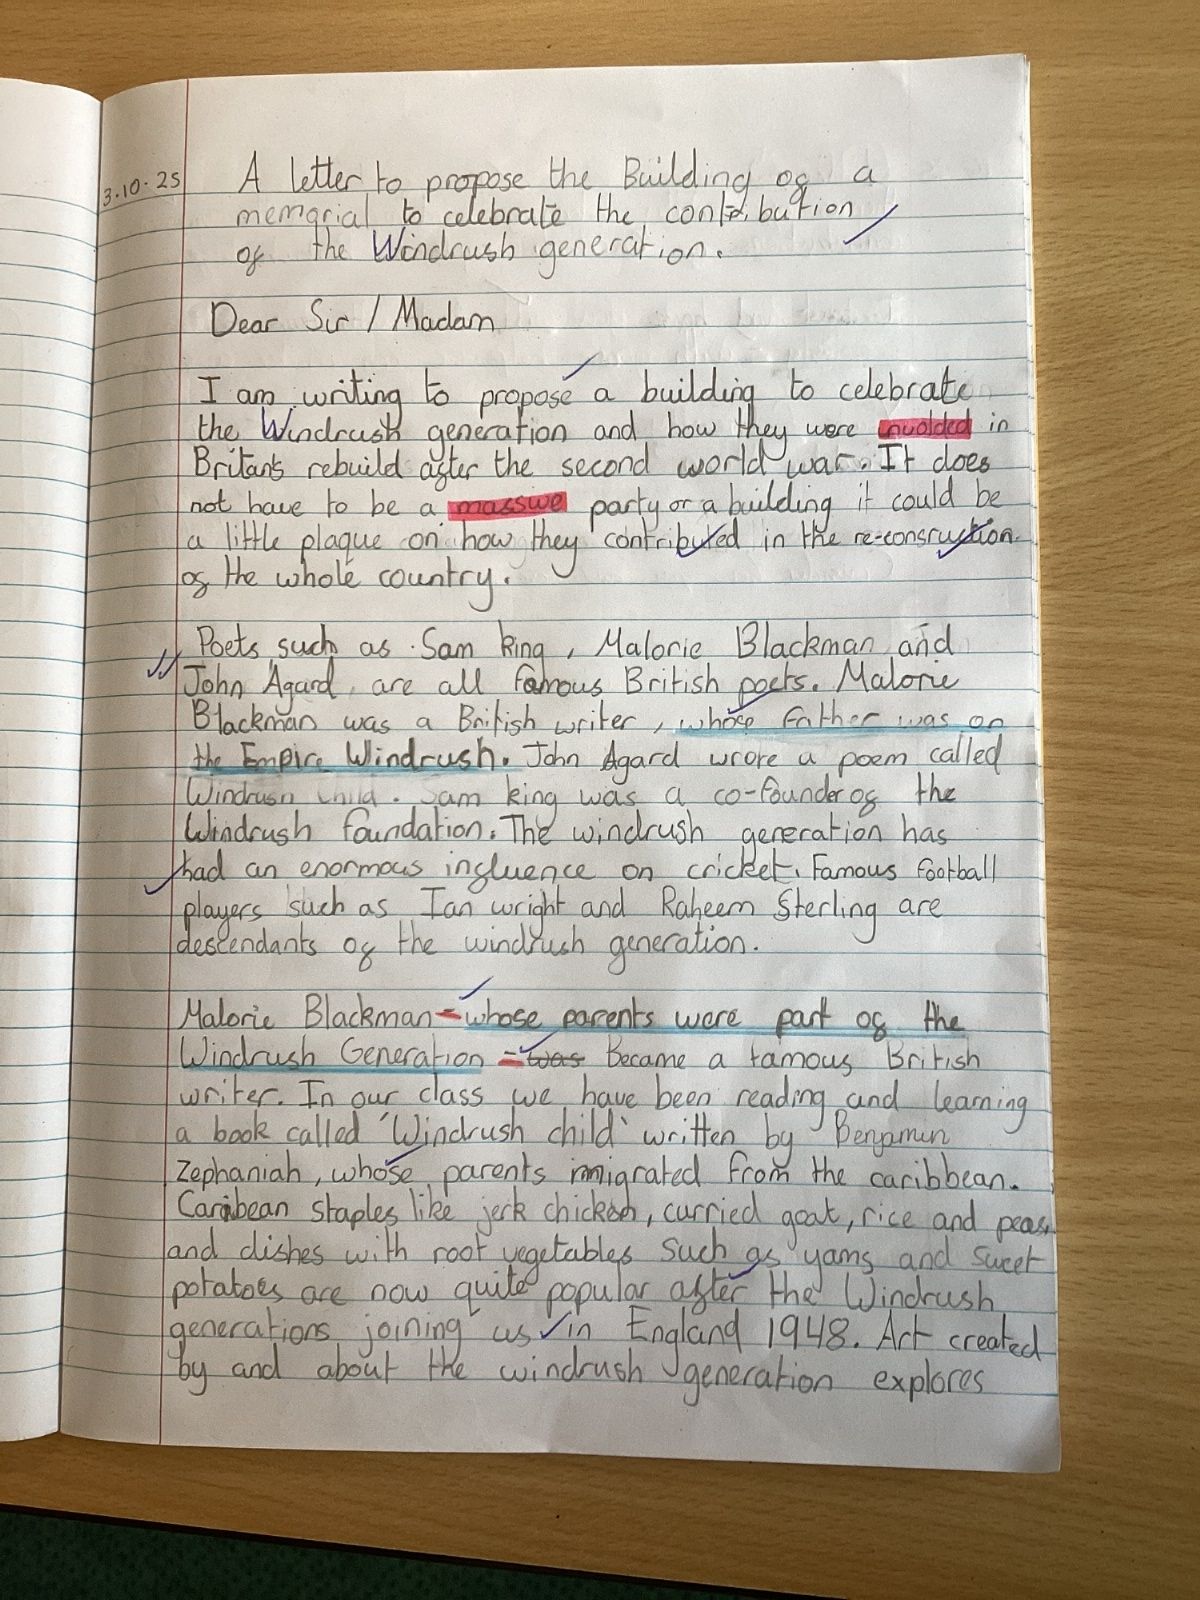 3.10.25
A letter to propose the Building of a
memorial to celebrate the contribution
of the Windrush generation.
Dear Sir / Madam
I am writing to propose a building to celebrate
the Windrush generation and how they were involded in
Britan's rebuild after the second world war. It does
not have to be a massive party or a building it could be
a little plaque on how they contributed in the re-consruction
of the whole country.
Poets such as Sam king, Malorie Blackman and
John Agard, are all famous British poets. Malorie
Blackman was a British writer, whose Father was on
the Empire Windrush. John Agard wrote a poem called
Windrush child. Sam king was a co-founder of the
Windrush foundation. The windrush generation has
had an enormous influence on cricket. Famous football
players such as Ian wright and Raheem Sterling are
descendants of the windrush generation.
Malorie Blackman - whose parents were part of the
Windrush Generation - was Became a famous British
writer. In our class we have been reading and learning
a book called 'Windrush child' written by Benjamin
Zephaniah, whose parents immigrated from the caribbean.
Caribean staples like jerk chicken, curried goat, rice and peas,
and dishes with root vegetables such as yams and sweet
potatoes are now quite popular after the Windrush
generations joining us in England 1948. Art created
by and about the windrush generation explores